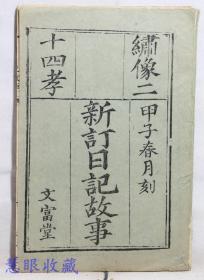 甲子春月刻
繡像二
十四孝
新訂日記故事
文富堂
慧眼收藏